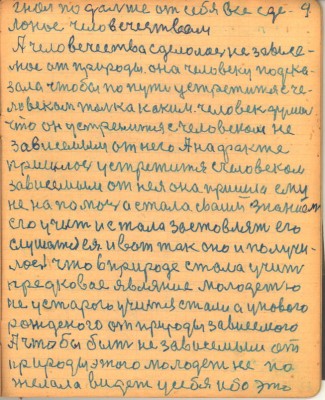 гнал подальше от себя все сде- 9
лоное человечеством
А человечества сделолас не зависе-
мое от природы, она человеку подска-
зала чтобы по пути устретится с че-
ловеком толка каким человек думал
что он устретится с человеком не
зависемым от него А на факте
пришлос устретится с человеком
зависемым от нея она пришла ему
не на помочь а стала своим знанием
его учит и стала заставлят его
слушатся ея и вот так оно и получи-
лос! что в природе стала учит
предковая явление молодетю
не у старого учится стали а у нового
рожденого от природы зависемого
А чтобы быт не зависемым от
природы этого молодет не по
желала видет у себя ибо это